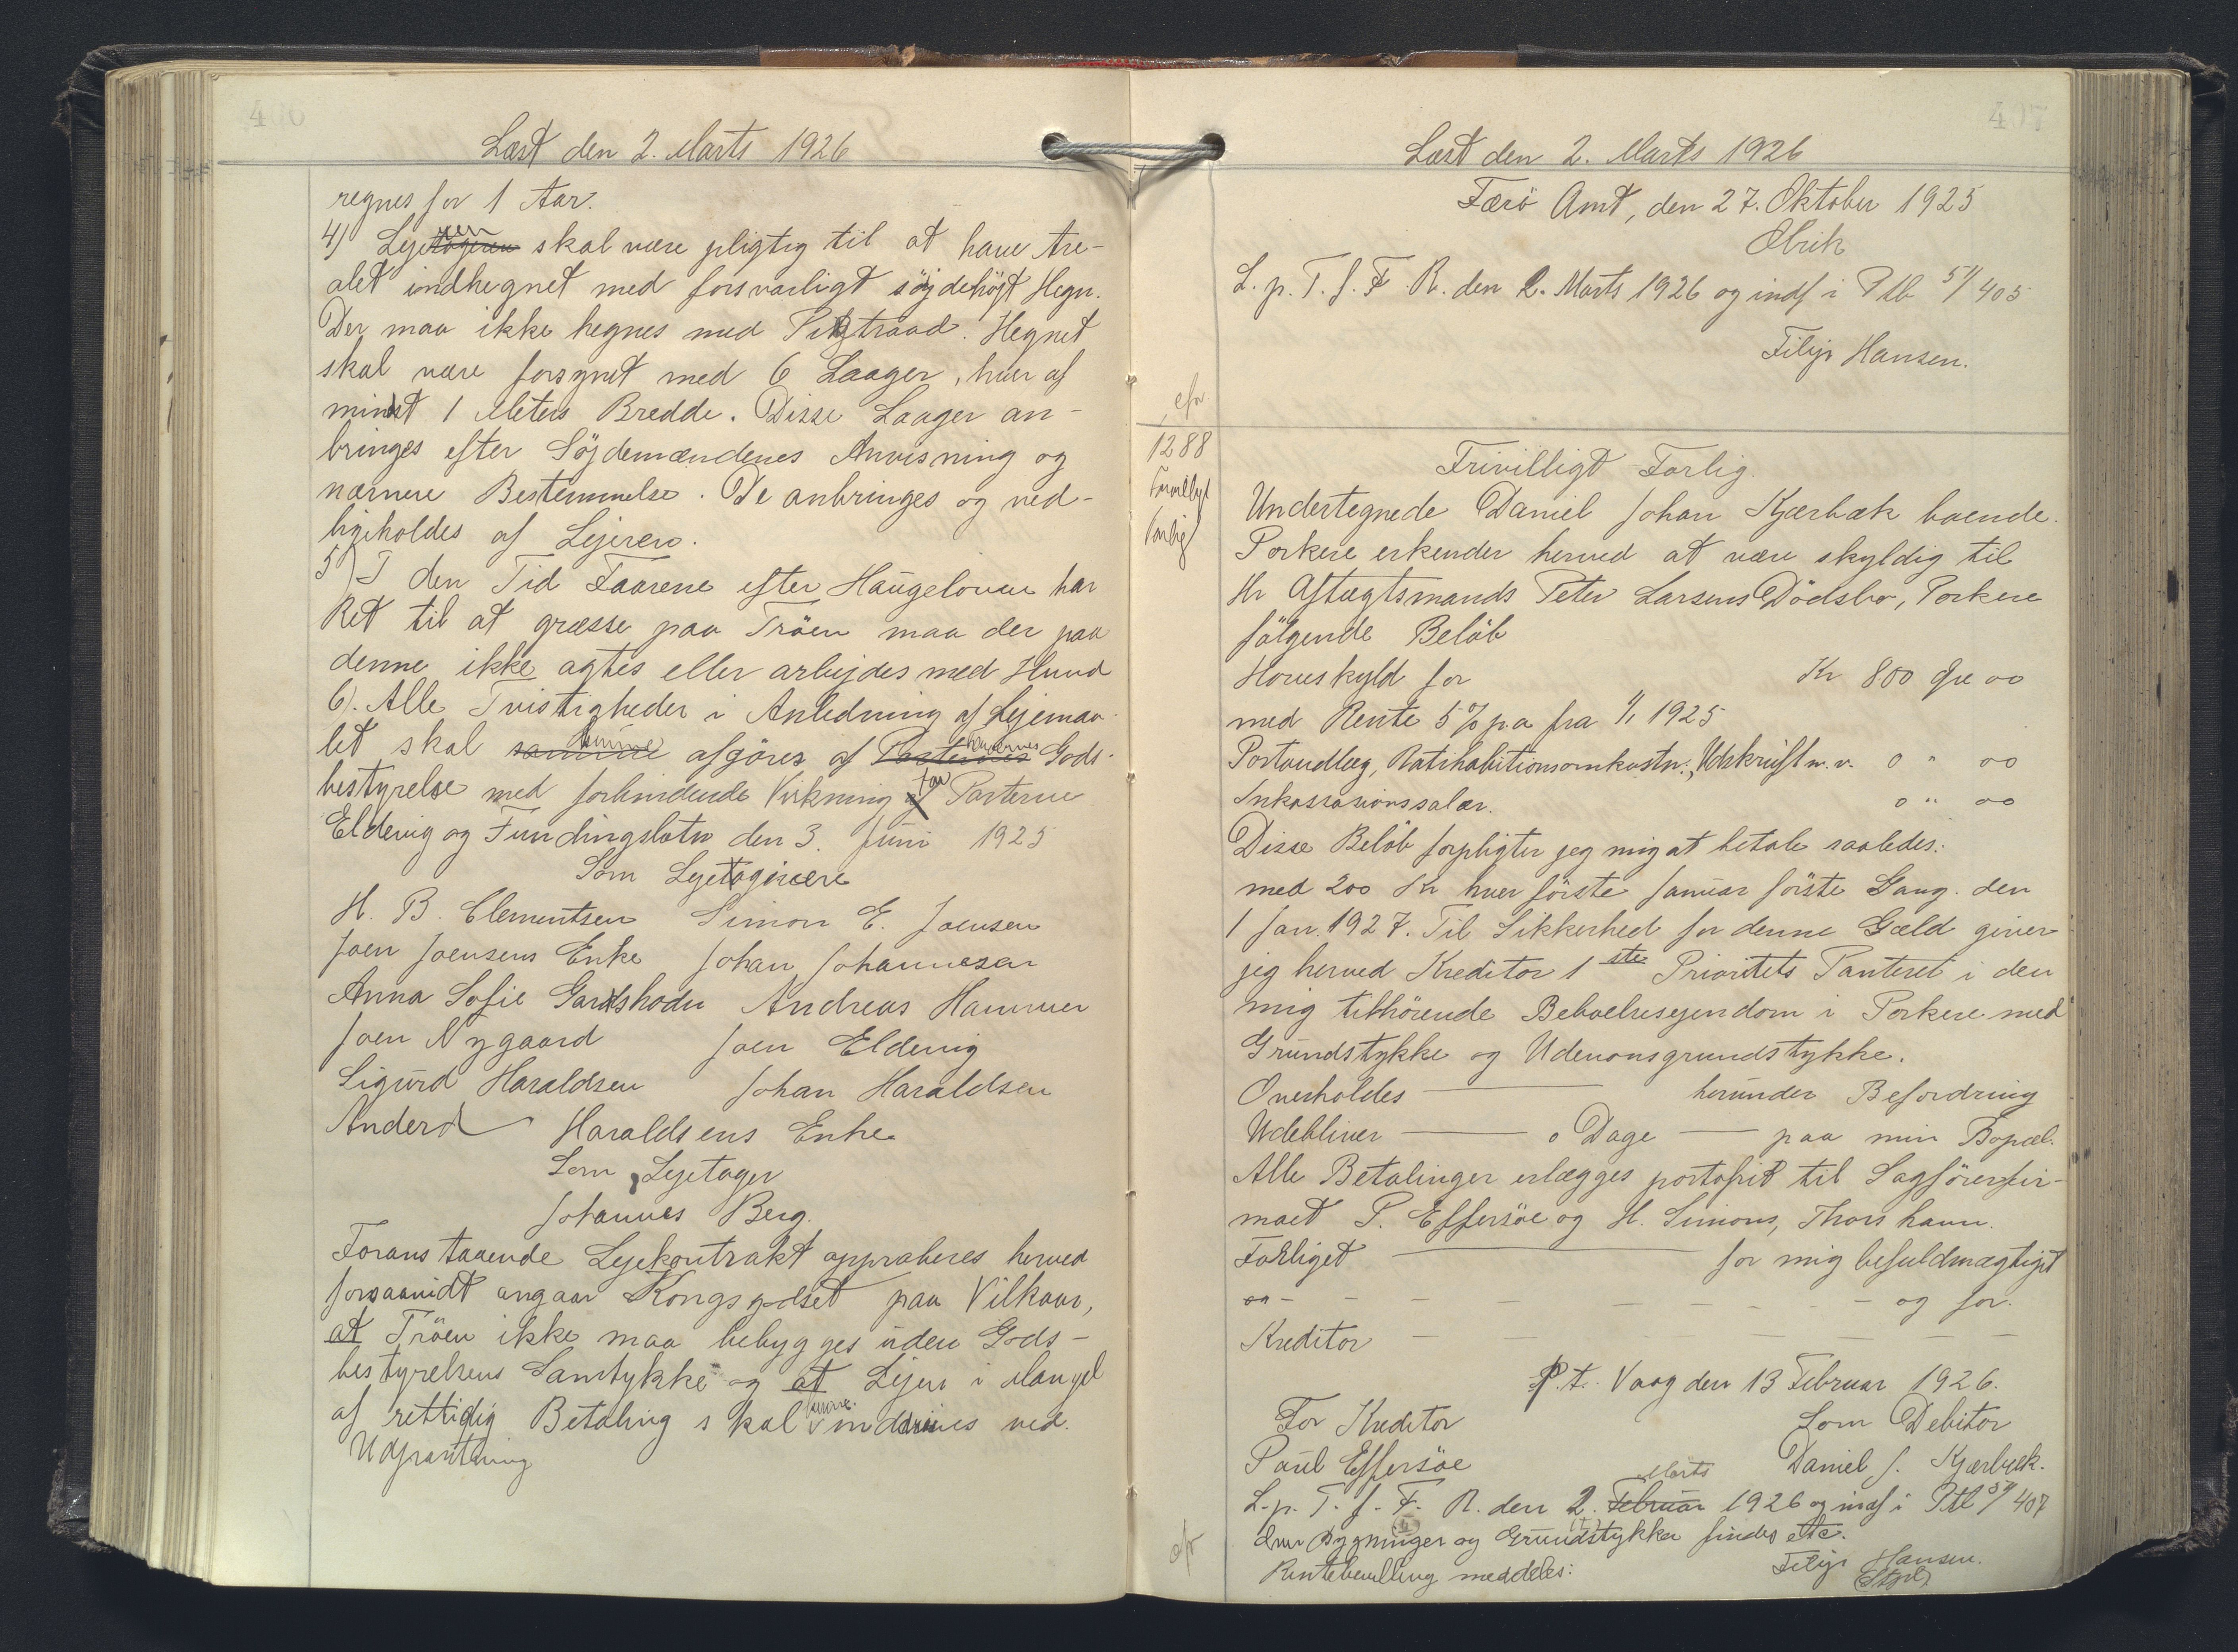 406
Læst den 2. Marts 1926
regnes for 1 Aar.
4) Lejetageren ren skal være pligtig til at have Are-
alet indhegnet med forsvarligt söjdehöjt Hegn.
Der maa ikke hegnes med Pigtraad. Hegnet
skal være forsynet med 6 Laager, hver af
mindst 1 Meters Bredde. Disse Laager an-
bringes efter Söjdemændenes Anvisning og
nærmere Bestemmelse. De anbringes og ved-
ligeholdes af Lejeren.
5) I den Tid Faarene efter Haugeloven har
Ret til at græsse paa Tröen maa der paa
denne ikke agtes eller arbejdes med Hund
6). Alle Tvistigheder i Anledning af Lejemaa-
let skal afgöres af Parternes Gods-
bestyrelse med forbindende Virkning for Parterne
Eldevig og Fundingsbotn den 3. Juni 1925
Som Lejetagivere
H. B. Clementsen Simon E. Joensen
Joen Joensens Enke Johan Johannesen
Anna Sofie Gardshodn Andreas Hammer
Joen Nygaard Joen Eldevig
Sigurd Haraldsen Johan Haraldsen
Anders Haraldsens Enke
Som Lejetager
Johannes Berg.
Foranstaaende Lejekontrakt approberes herved
forsaavidt angaar Kongsgodset paa Vilkaar,
at Tröen ikke maa bebygges uden Gods-
bestyrelsens Samtykke og at Lejen i Mangel
af rettidig Betaling skal kunne inddrives ved.
Udpantning
407
Læst den 2. Marts 1926
Færö Amt, den 27. Oktober 1925
L. p. T. f. F. R. den 2. Marts 1926 og indf i Ptb 51/405
Filip Hansen.
1288
Frivilligt
Forlig
Frivilligt Forlig.
Undertegnede Daniel Johan Kjærbæk boende
Porkere erkender herved at være skyldig til
Hr Aftægtsmands Peter Larsens Dödsbo, Porkere
fölgende Belöb
Hovedskyld for Kr 800 Øre 00
med Rente 5% p.a fra 1/1 1925
Portoudlæg, Ratihabitionsomkostn., Udskrift m.v. 0 " 00
Inkassasionssalær. 0 " 00
Disse Belöb forpligter jeg mig at betale saaledes:
med 200 Kr hver förste Januar förste Gang den
1 Jan. 1927. Til Sikkerhed for denne Gæld giver
jeg herved Kreditor 1ste Prioritets Panteret i den
mig tilhörende Beboelsesejendom i Porkere med
Grundstykke og Udenomsgrundstykke.
Overholdes — herunder Befordring
Udebliver — 0 Dage — paa min Bopæl.
Alle Betalinger erlægges portofrit til Sagförerfir-
maet P. Effersöe og H. Simons, Thorshavn.
Forliget — for mig befuldmægtiget
og for.
Kreditor
P.t. Vaag den 13 Februar 1926.
For Kreditor Som Debitor
Paul Effersöe Daniel J. Kjærbæk.
L. p. T. f. F. R. den 2. Februar Marts 1926 og indf i Ptb 51/407
Bygninger og Grundstykker findes etc.
Rentebevilling meddeles:
Filip Hansen.